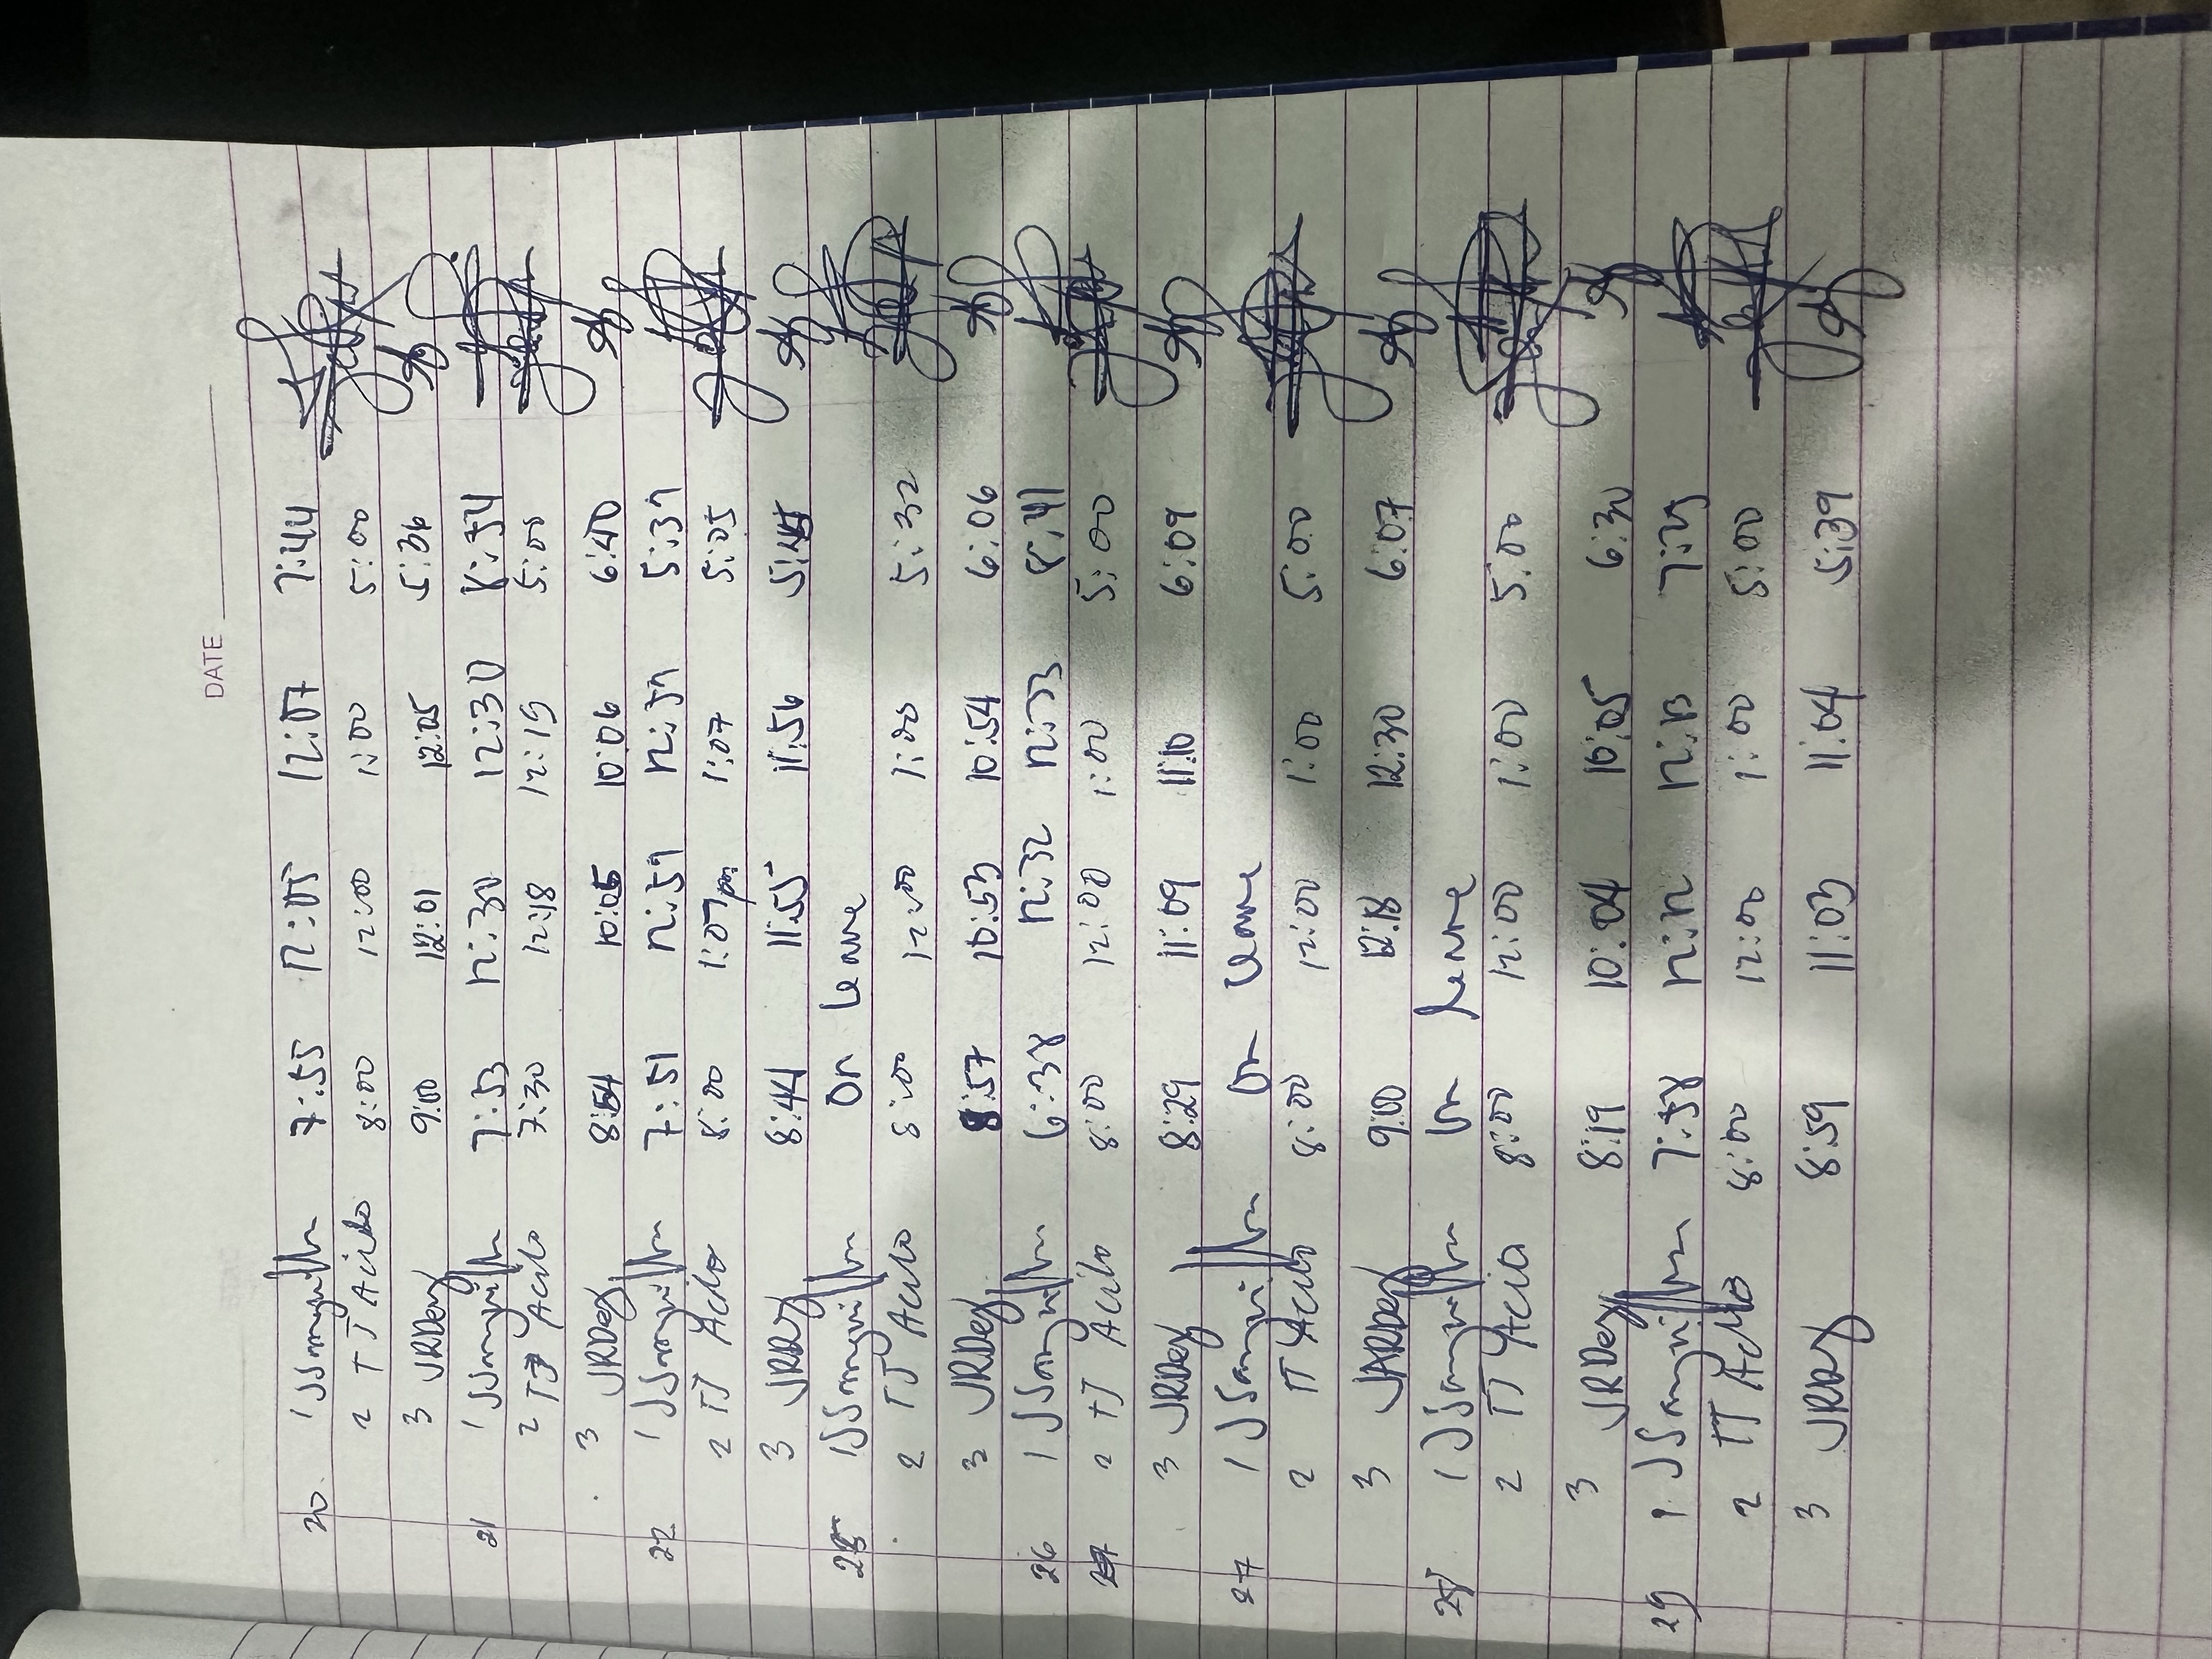 DATE
20. 1 7:55 12:05 12:07 7:44
2 TJ Acido 8:00 12:00 1:00 5:00
3 JRDey 9:00 12:01 12:05 5:36
21 1 7:53 12:30 12:30 8:54
2 TJ Acido 7:30 12:18 12:19 5:00
3 JRDey 8:54 10:05 10:06 6:40
22 1 7:51 12:59 12:59 5:39
2 TJ Acido 8:00 1:07pm 1:07 5:05
3 JRDey 8:44 11:55 11:56
25 1 On leave
2 TJ Acido 8:00 12:00 1:00 5:32
3 JRDey 8:57 10:53 10:54 6:06
26 1 6:38 12:32 12:33 8:41
2 TJ Acido 8:00 12:00 1:00 5:00
3 JRDey 8:29 11:09 11:10 6:09
27 1 On leave
2 TJ Acido 8:00 12:00 1:00 5:00
3 9:00 12:18 12:30 6:07
28 1 On leave
2 TJ Acido 8:00 12:00 1:00 5:00
3 JRDey 8:19 10:04 10:05 6:30
29 1 7:58 12:12 12:13
2 TJ Acido 8:00 12:00 1:00 5:00
3 JRDey 8:59 11:03 11:04 5:39